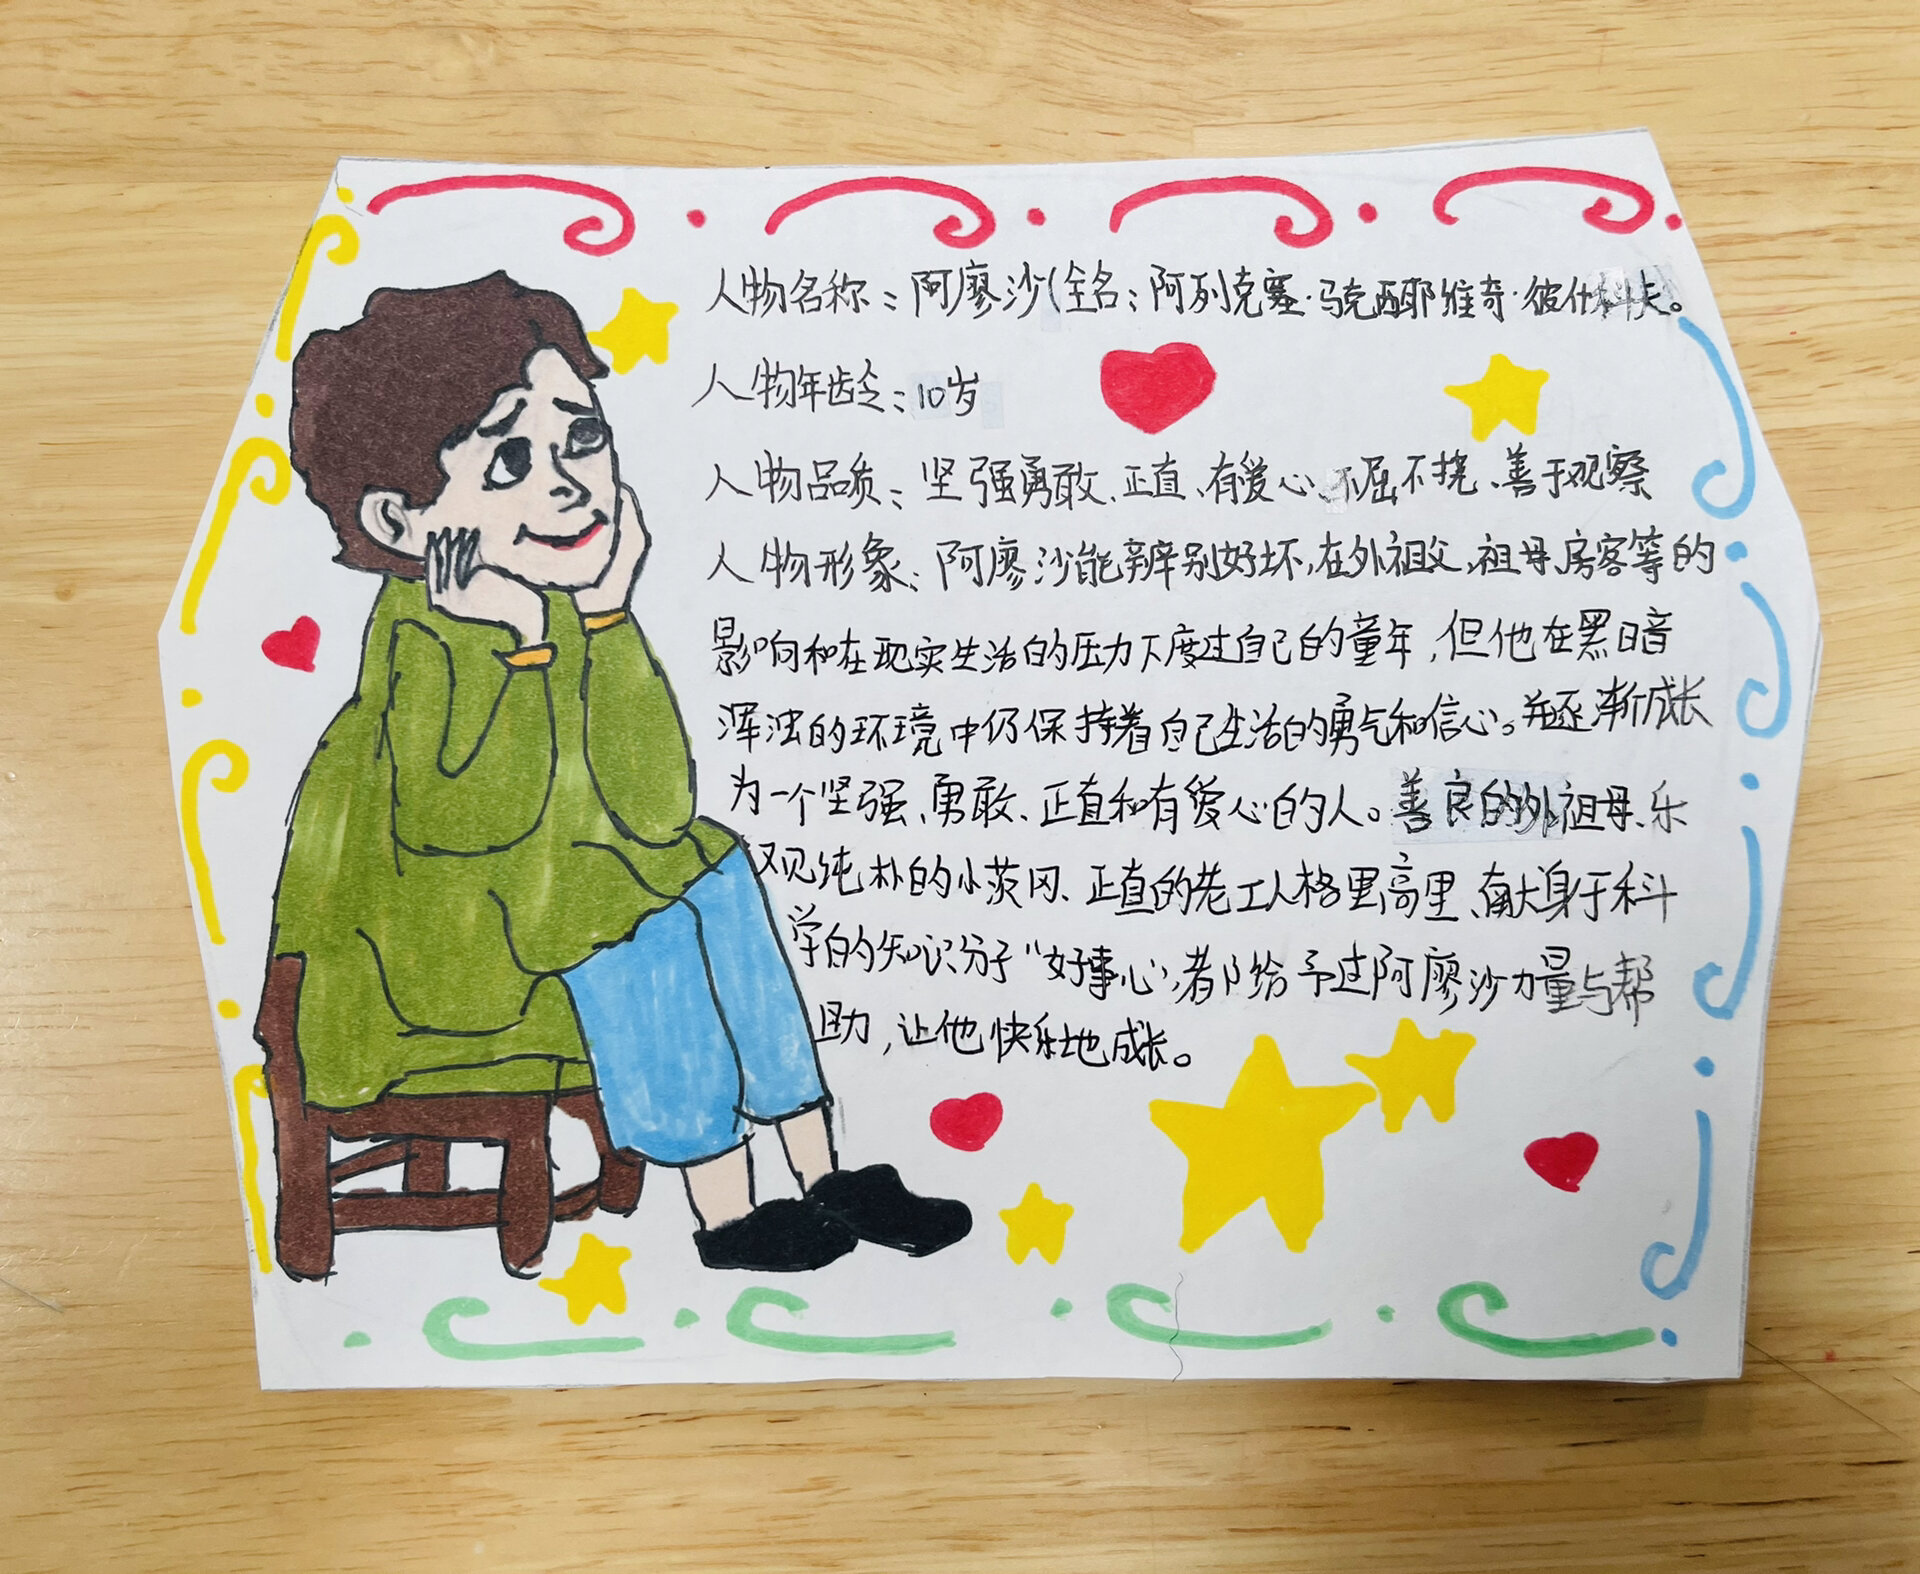 人物名称：阿廖沙(全名：阿列克塞·马克西耶维奇·彼什科夫。
人物年龄：10岁
人物品质：坚强勇敢、正直、有爱心、不屈不挠、善于观察
人物形象：阿廖沙能辨别好坏，在外祖父、祖母、房客等的
影响和在现实生活的压力下度过自己的童年，但他在黑暗
浑浊的环境中仍保持着自己生活的勇气和信心。并逐渐成长
为一个坚强、勇敢、正直和有爱心的人。善良的外祖母、乐
观纯朴的小茨冈、正直的老工人格里高里、献身于科
学的知识分子“好事心”，都给予过阿廖沙力量与帮
助，让他快乐地成长。